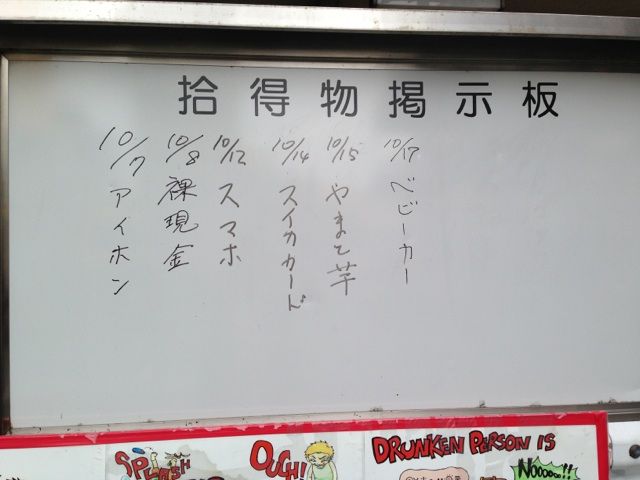 拾得物掲示板
10/7 アイホン
10/8 裸現金
10/12 スマホ
10/14 スイカカード
10/15 やまと芋
10/17 ベビーカー
SPLASH
OUCH!
DRUNKEN PERSON IS
NOOOOO!!